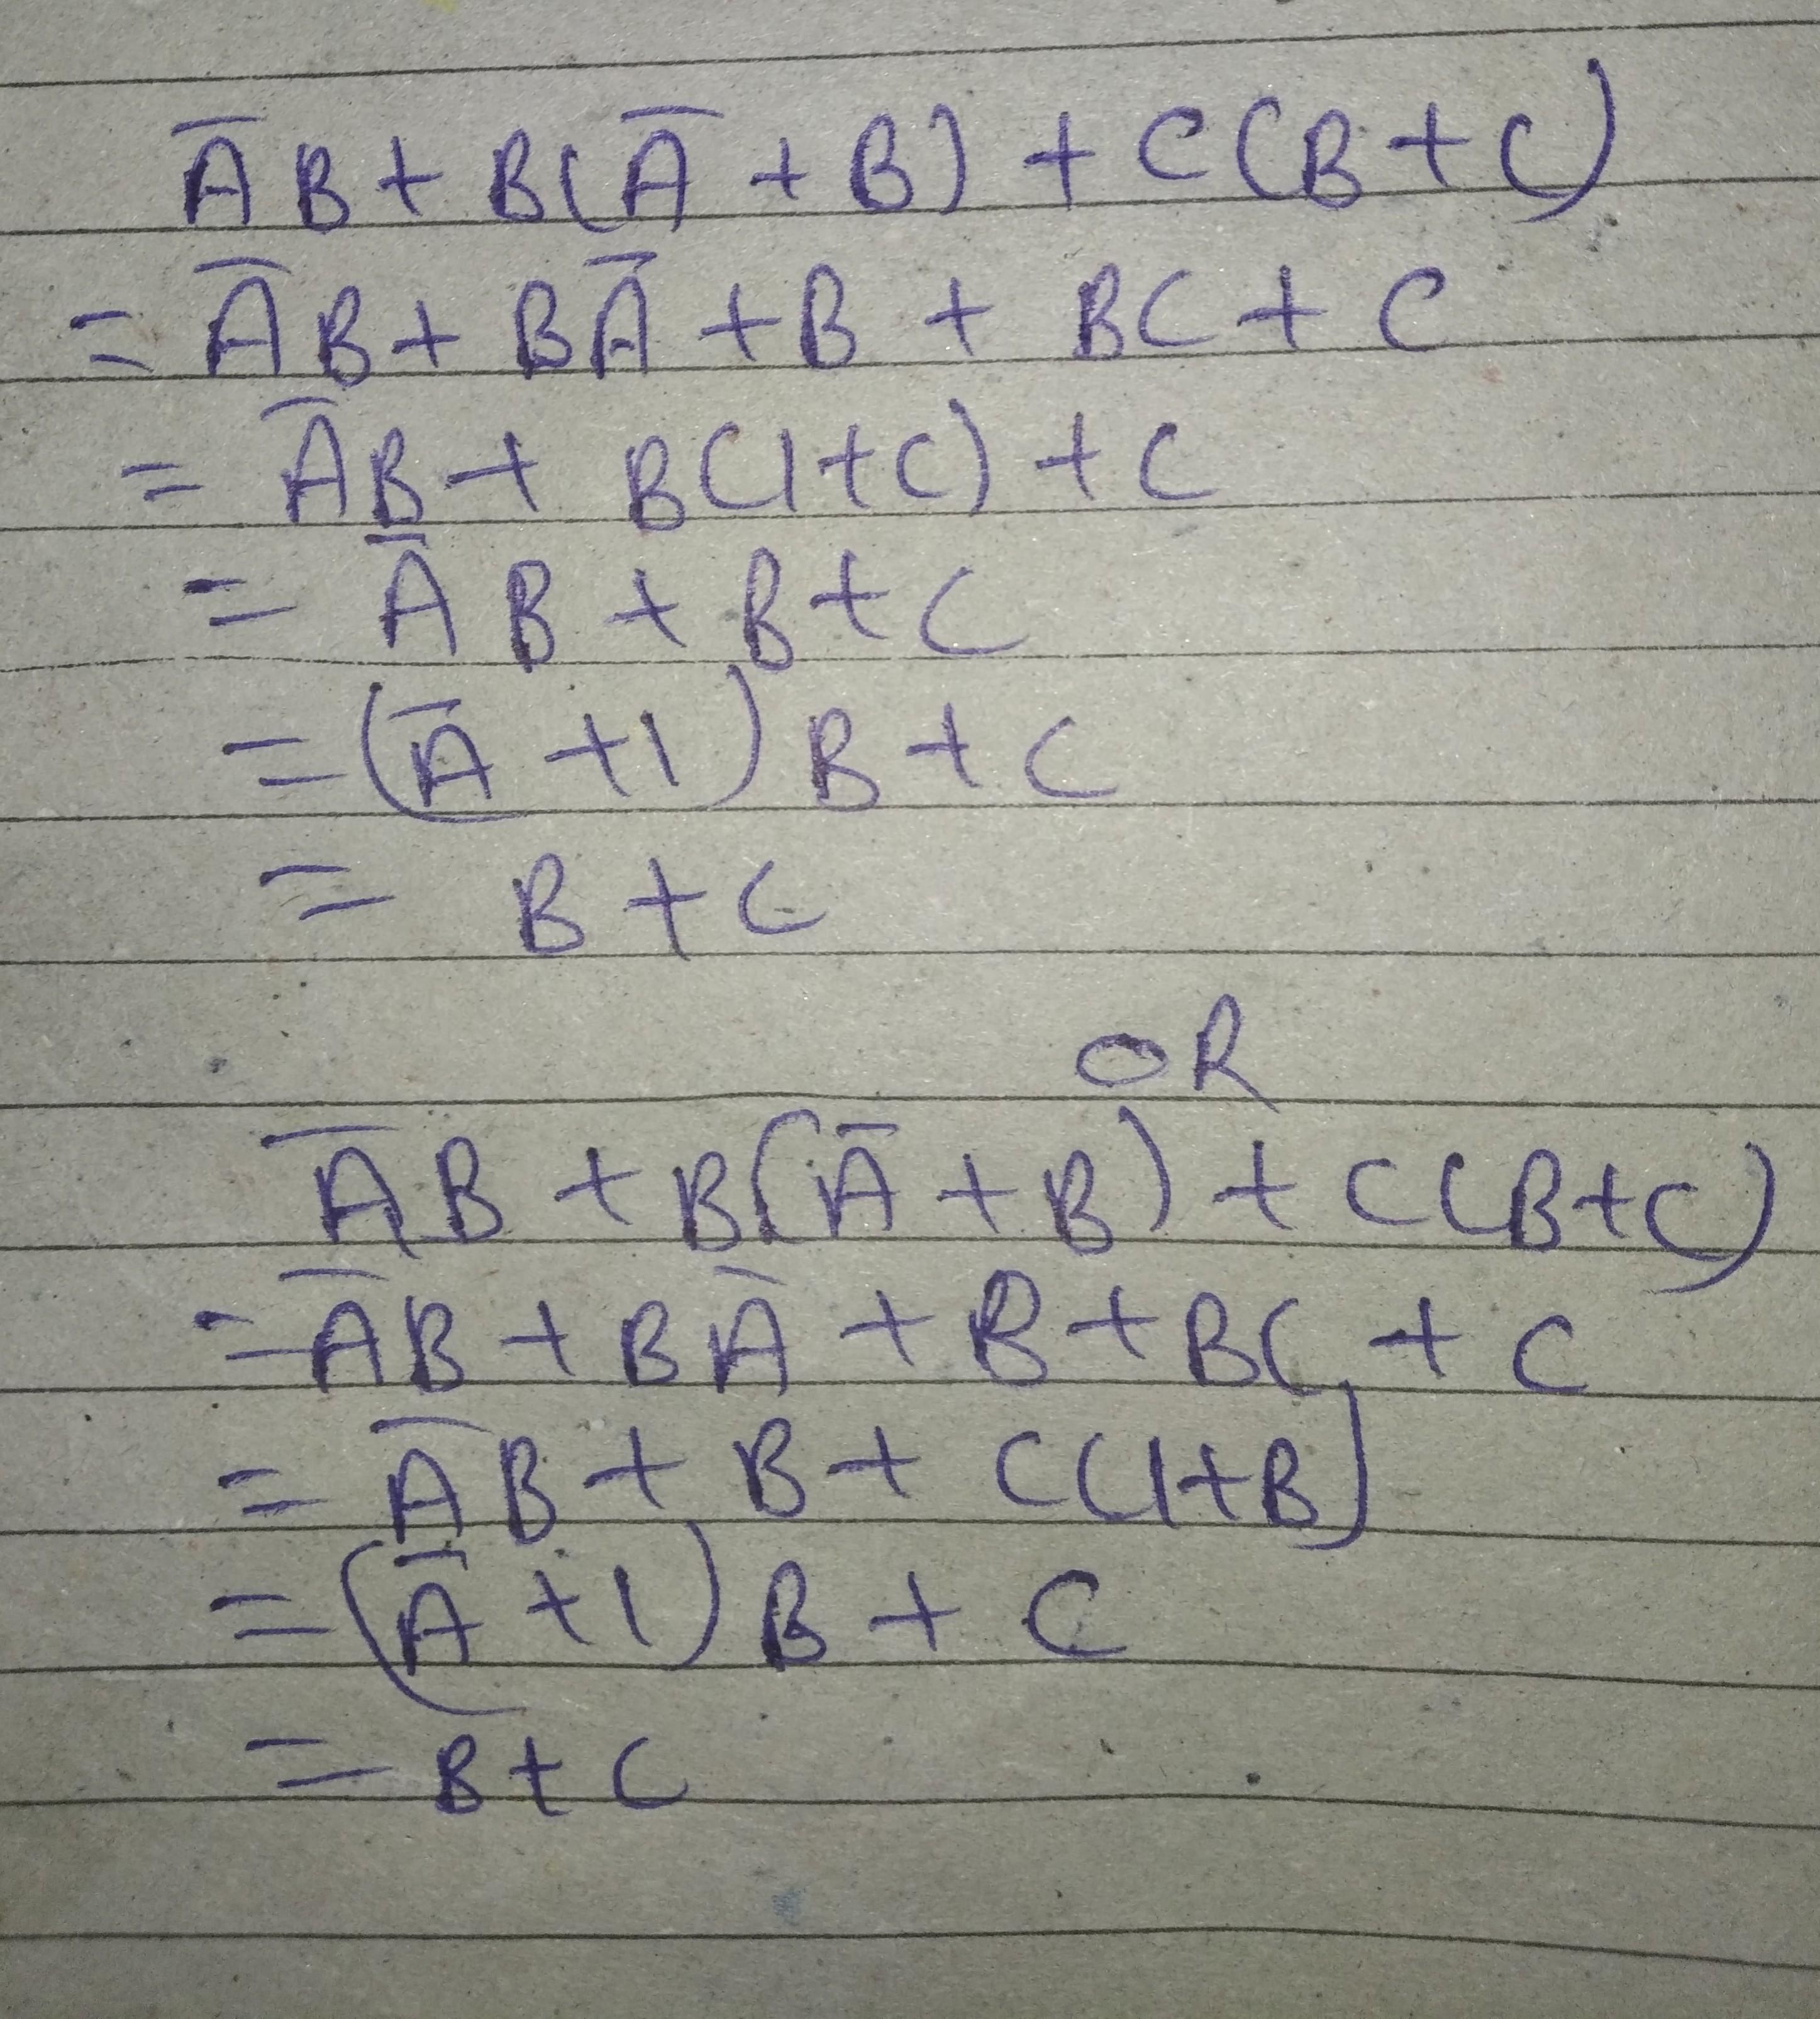 A̅B + B(A̅ + B) + C(B + C)
= A̅B + BA̅ + B + BC + C
= A̅B + B(1+C) + C
= A̅B + B + C
= (A̅ + 1)B + C
= B + C
OR
A̅B + B(A̅ + B) + C(B+C)
= A̅B + BA̅ + B + BC + C
= A̅B + B + C(1+B)
= (A̅ + 1)B + C
= B + C